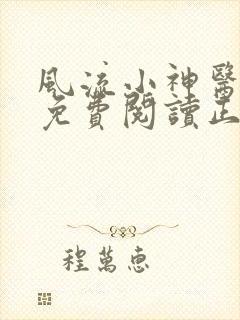 風流小神醫
免費閱讀正
程萬惠